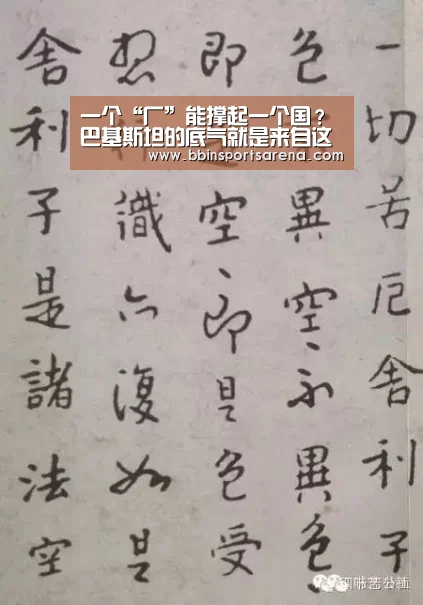 一个“厂”能撑起一个国？
巴基斯坦的底气就是来自这
www.bbinsportsarena.com
一切苦厄舍利子
色異空、不異色、
即空、即是色受
想識亦復如是
舍利子是諸法空